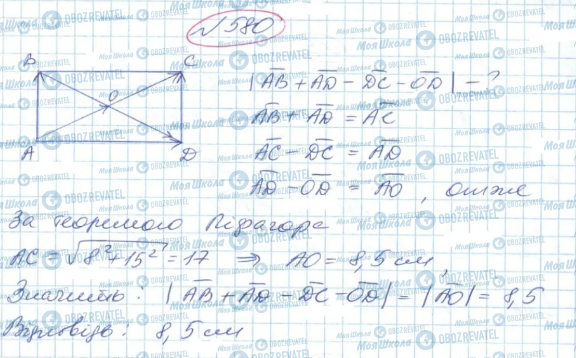 №580
B C
O
A D
|A̅B̅ + A̅D̅ − D̅C̅ − O̅D̅| − ?
A̅B̅ + A̅D̅ = A̅C̅
A̅C̅ − D̅C̅ = A̅D̅
A̅D̅ − O̅D̅ = A̅O̅, отже
За теоремою Піфагора
AC = √8² + 15² = 17 ⇒ AO = 8,5 см,
Значить: |A̅B̅ + A̅D̅ − D̅C̅ − O̅D̅| = |A̅O̅| = 8,5
Відповідь: 8,5 см
Моя Школа OBOZREVATEL